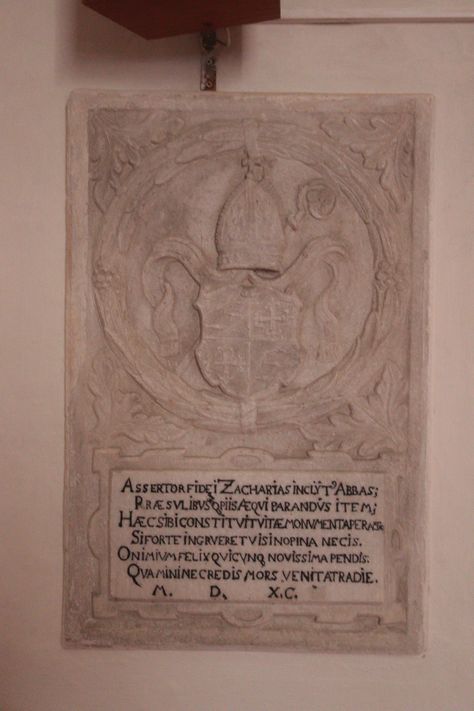 ASSERTOR FIDEI ZACHARIAS INCLYT' ABBAS;
PRÆSVLIBVSQ; PIIS ÆQVIPARANDVS ITEM;
HÆC SIBI CONSTITVIT VITÆ MONVMENTA PERACTÆ
SI FORTE INGRVERET VIS INOPINA NECIS.
O NIMIVM FELIX QVICVNQ; NOVISSIMA PENDIS.
QVA MININE CREDIS MORS VENIT ATRA DIE.
M. D. XC.